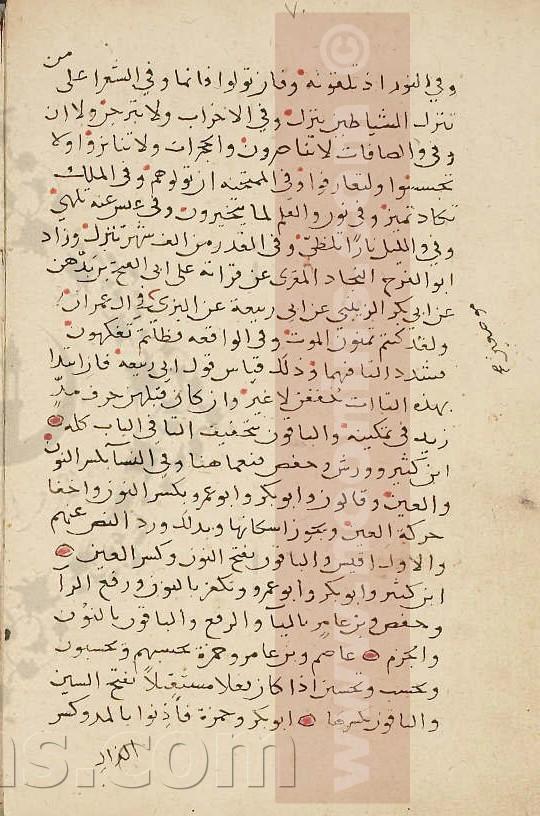 ٧٠
من
وفي النور اذ تلقونه وفان تولوا فانما وفي الشعرا على
تنزل الشياطين تنزل وفي الاحزاب ولا تبرجن ولا ان
وفي والصافات لا تناصرون والحجرات ولا تنابزوا ولا
تجسسوا ولتعارفوا وفي الممتحنه ان تولوهم وفي الملك
تكاد تميز وفي نون والقلم لما تخيرون وفي عبس عنه تلهي
وفي والليل نارًا تلظى وفي القدر من الف شهر تنزل وزاد
ابو الفرج النجاد المقرى عن قراته على ابي الفتح بن بدهن
عن ابي بكر الزينبي عن ابي ربيعة عن البزي في ال عمران
ولقد كنتم تمنون الموت وفي الواقعه فظلتم تفكهون
فشدد التا فيهما وذلك قياس قول ابي ربيعه فاز ابتدا
بهذه التاات خففن لا غير وان كان قبلهن حرف مدٍّ
زيد في تمكينه والباقون بتخفيف التا في الباب كله
ابن كثير وورش وحفص فنعما هنا وفي النسا بكسر النون
والعين وقالون وابو بكر وابو عمرو بكسر النون واخفا
حركة العين ويجوز اسكانها وبذلك ورد النص عنهم
والاول اقيس والباقون بفتح النون وكسر العين
ابن كثير وابو بكر وابو عمرو ونكفر بالنون ورفع الرآ
وحفص وبن عامرٍ باليآ والرفع والباقون بالنون
والجزم عاصم وبن عامر وحمزة يحسبهم ويحسبون
ويحسب وتحسبن اذا كان فعلا مستقبلًا بفتح السين
والباقون بكسرها ابو بكر وحمزة فآذنوا بالمد وكسر
الذال
www
ms.com